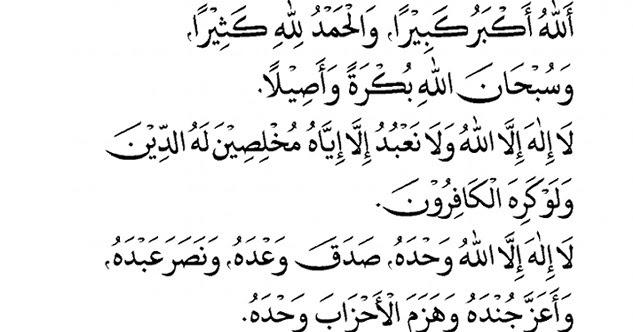 أَللّٰهُ أَكْبَرُ كَبِيْرًا, وَالْحَمْدُ لِلّٰهِ كَثِيْرًا,
وَسُبْحَانَ اللّٰهِ بُكْرَةً وَأَصِيْلًا.
لَا إِلٰهَ إِلَّا اللّٰهُ وَلَا نَعْبُدُ إِلَّا إِيَّاهُ مُخْلِصِيْنَ لَهُ الدِّيْنَ
وَلَوْ كَرِهَ الْكَافِرُوْنَ.
لَا إِلٰهَ إِلَّا اللّٰهُ وَحْدَهُ, صَدَقَ وَعْدَهُ, وَنَصَرَ عَبْدَهُ,
وَأَعَزَّ جُنْدَهُ وَهَزَمَ الْأَحْزَابَ وَحْدَهُ.